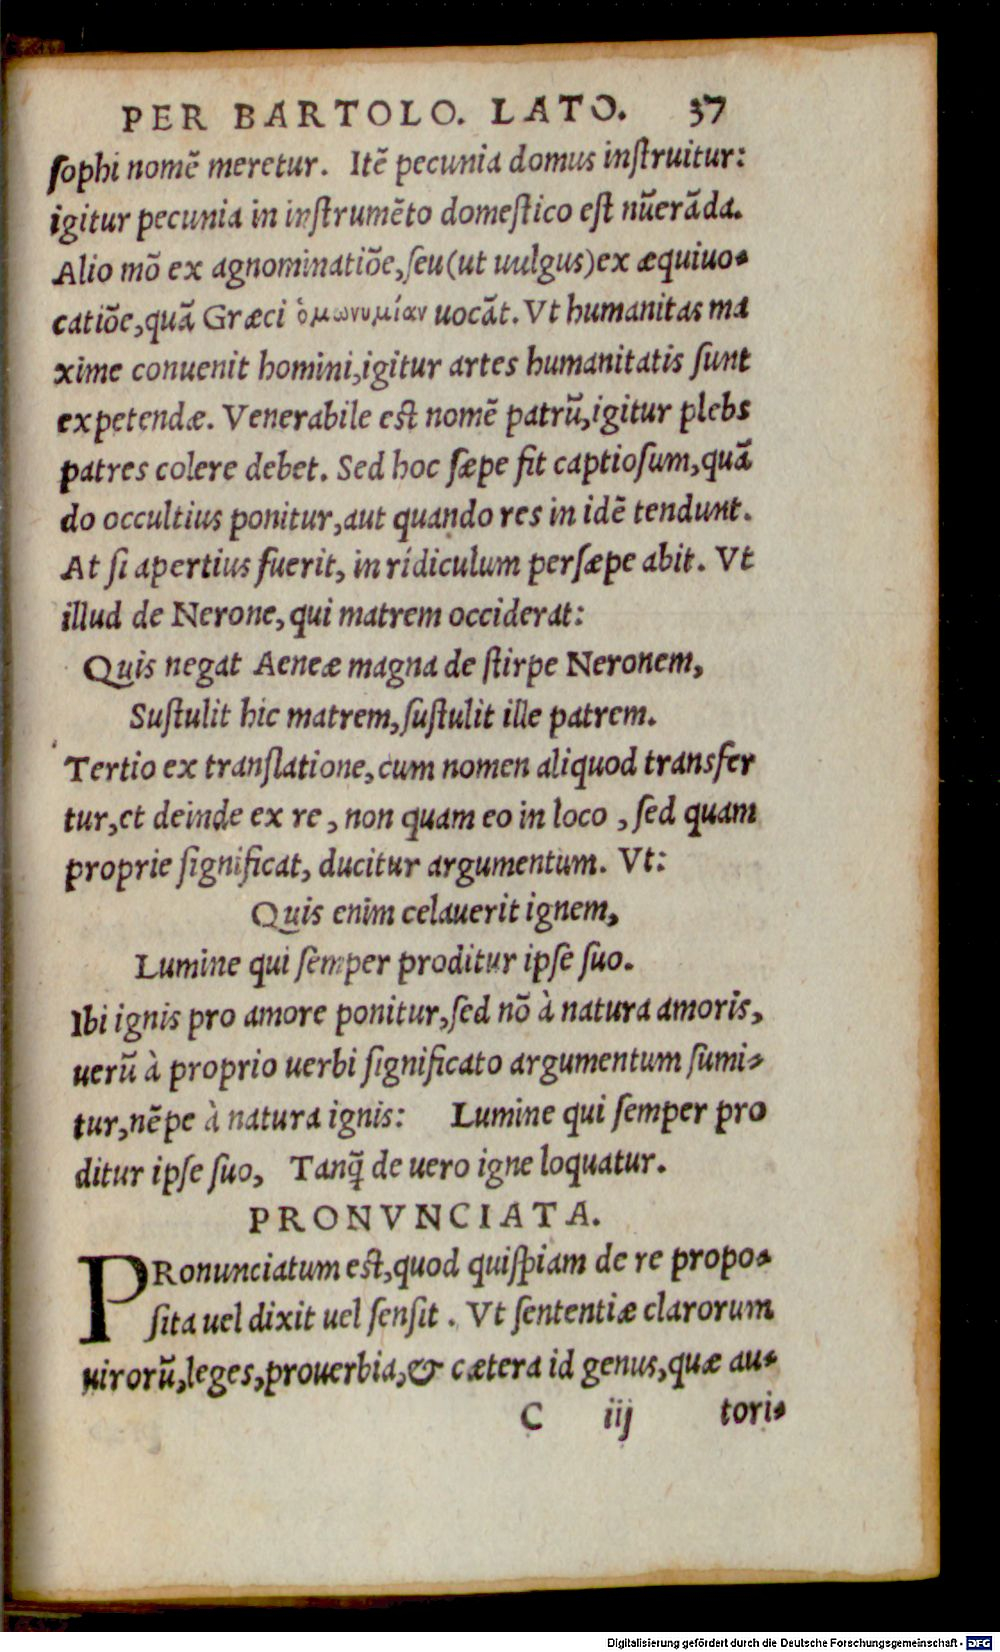 PER BARTOLO. LATO. 37
ſophi nomē meretur. Itē pecunia domus inſtruitur:
igitur pecunia in inſtrumēto domeſtico eſt nūerāda.
Alio mō ex agnominatiōe,ſeu(ut uulgus)ex æquiuo-
catiōe,quā Græci ὁμωνυμίαν uocāt. Vt humanitas ma
xime conuenit homini,igitur artes humanitatis ſunt
expetendæ. Venerabile eſt nomē patrū,igitur plebs
patres colere debet. Sed hoc ſæpe fit captioſum,quā
do occultius ponitur,aut quando res in idē tendunt.
At ſi apertius fuerit, in rídiculum perſæpe abit. Vt
illud de Nerone,qui matrem occiderat:
Quis negat Aeneæ magna de ſtirpe Neronem,
Suſtulit hic matrem,ſuſtulit ille patrem.
Tertio ex tranſlatione,cum nomen aliquod transfer
tur,et deinde ex re , non quam eo in loco , ſed quam
proprie ſignificat, ducitur argumentum. Vt:
Quis enim celauerit ignem,
Lumine qui ſemper proditur ipſe ſuo.
Ibi ignis pro amore ponitur,ſed nō à natura amoris,
uerū à proprio uerbi ſignificato argumentum ſumi-
tur,nēpe à natura ignis: Lumine qui ſemper pro
ditur ipſe ſuo, Tanq̃ de uero igne loquatur.
PRONVNCIATA.
PRonunciatum eſt,quod quiſpiam de re propo-
ſita uel dixit uel ſenſit . Vt ſententiæ clarorum
uirorū,leges,prouerbia,& cætera id genus,quæ au-
C iij tori-
Digitalisierung gefördert durch die Deutsche Forschungsgemeinschaft - DFG